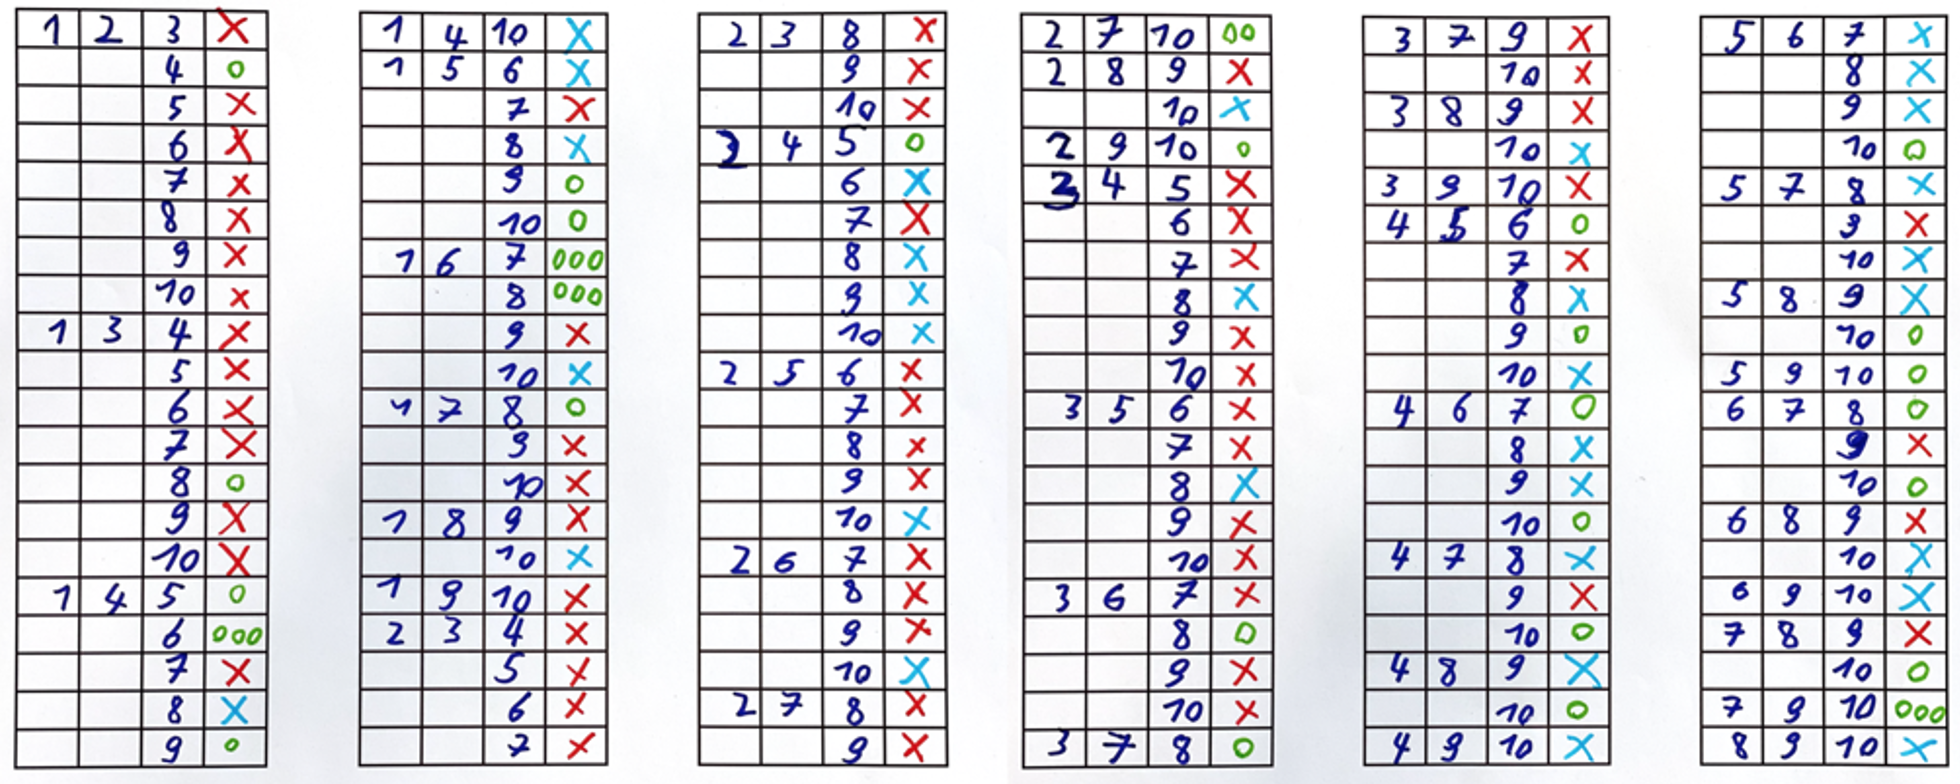 1 2 3 X
4 o
5 X
6 X
7 X
8 X
9 X
10 X
1 3 4 X
5 X
6 X
7 X
8 o
9 X
10 X
1 4 5 o
6 ooo
7 X
8 X
9 o
1 4 10 X
1 5 6 X
7 X
8 X
9 o
10 o
1 6 7 ooo
8 ooo
9 X
10 X
1 7 8 o
9 X
10 X
1 8 9 X
10 X
1 9 10 X
2 3 4 X
5 X
6 X
7 X
2 3 8 X
9 X
10 X
2 4 5 o
6 X
7 X
8 X
9 X
10 X
2 5 6 X
7 X
8 X
9 X
10 X
2 6 7 X
8 X
9 X
10 X
2 7 8 X
9 X
2 7 10 oo
2 8 9 X
10 X
2 9 10 o
3 4 5 X
6 X
7 X
8 X
9 X
10 X
3 5 6 X
7 X
8 X
9 X
10 X
3 6 7 X
8 o
9 X
10 X
3 7 8 o
3 7 9 X
10 X
3 8 9 X
10 X
3 9 10 X
4 5 6 o
7 X
8 X
9 o
10 X
4 6 7 o
8 X
9 X
10 o
4 7 8 X
9 X
10 o
4 8 9 X
10 o
4 9 10 X
5 6 7 X
8 X
9 X
10 o
5 7 8 X
9 X
10 X
5 8 9 X
10 o
5 9 10 o
6 7 8 o
9 X
10 o
6 8 9 X
10 X
6 9 10 X
7 8 9 X
10 o
7 9 10 ooo
8 9 10 X